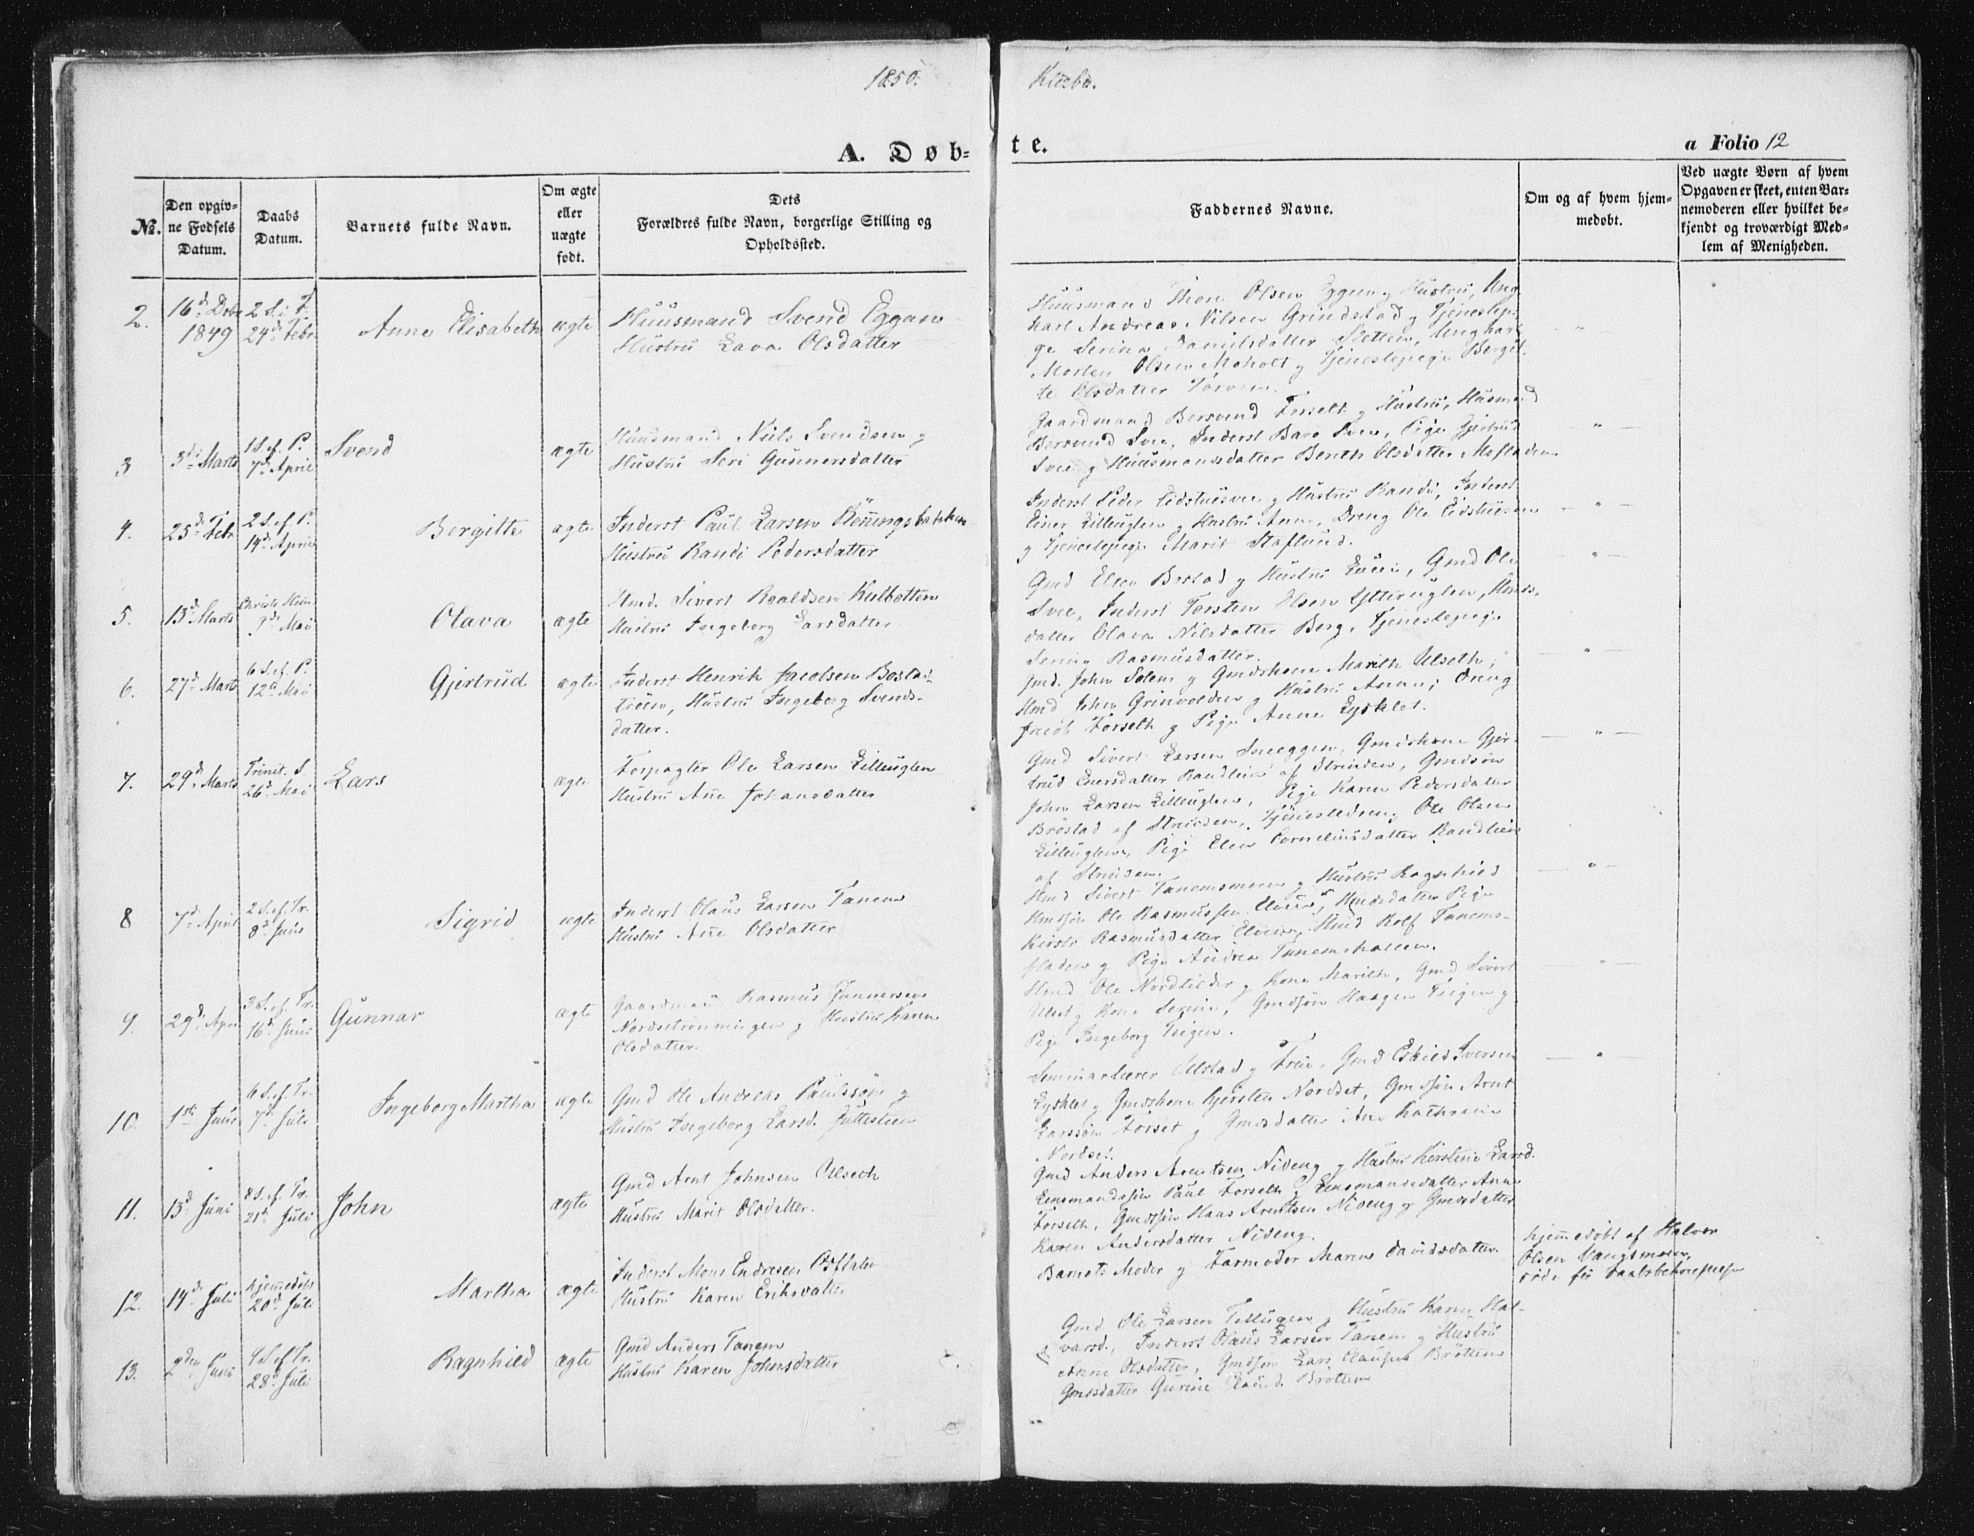 1850.
Klæbu.
A. Døb=
te.
a Folio 12
No.
Den opgiv=
ne Fødsels
Datum.
Daabs
Datum.
Barnets fulde Navn.
Om ægte
eller
uægte
født.
Dets
Forældres fulde Navn, borgerlige Stilling og
Opholdssted.
Faddernes Navne.
Om og af hvem hjem=
medøbt.
Ved uægte Børn af hvem
Opgaven er skeet, enten Bar=
nemoderen eller hvilket be=
kjendt og troværdigt Med=
lem af Menigheden.
2. 16d Debr 1849
24d Febr
Anne Elisabeth ægte
Huusmand Svend Eggan
Hustru Lava Olsdatter
Huusmand Thore Olsen Eggen og Hustru, Ung
karl Andreas Nilsen Grindstad og Tjenestepi
ge Serina Danielsdatter Sletten, Ungkarl
Morten Olsen Moholt og Tjenestepige Bergit
te Olsdatter
3 3di Marts
1 S. ef. P.
7d April
Svend ægte
Huusmand Niels Svendsen og
Hustru Seri Gunnersdatter
Gaardmand Bersvend Forseth og Hustru, Huusmand
Bersvend Svee, Inderst Baro Svee, Pige Gjertrud
Svee og Huusmandsdatter Berith Olsdatter
4. 25d Febr
2 S. ef. P.
14d April
Bergitte ægte
Inderst Paul Larsen Rönningsbakken
Hustru Randi Pedersdatter
Inderst Peder Eidstuesvee og Hustru Randi, Inderst
Einer Lilleuglen og Hustru Anne, Dreng Ole Eidstuesvee
og Tjenestepige Marit Staflund.
5. 13d Marts
Christi Him
9d Mai
Olava ægte
Hmd. Sivert Roaldsen Kulbotten
Hustru Ingeborg Larsdatter
Gmd Brostad og Hustru Gmd Ole
Svee, Inderst Torsten Olsen Ytteruglen, Hmds.
datter Olava Nilsdatter Berg, Tjenestepige
Serine Rasmusdatter.
6. 27d Marts
6 S. ef. P.
12d Mai
Gjertrud ægte
Inderst Henrik Jacobsen Bostad
trøen, Hustru Ingeborg Svends-
datter.
Gmd. John Solem og Gmdskone Marith Ulseth,
Hmd John Grinvolden og Hustru Anne; Dreng
Jacob Forseth og Pige Anne Eysklet.
7. 29d Marts
Trinit. S.
26d Mai
Lars ægte
Forpagter Ole Larsen Lilleuglen
Hustru Ane Johansdatter
Gmd Sivert Larsen Sneeggen, Gmdskone Gjer-
trud Einersdatter Randlien af Strinden, Gmdsøn
John Larsen Lilleuglen, Pige Karen Pedersdatter
Brøstad af Strinden, Tjenestedreng Ole Olsen
Lilleuglen, Pige Elen Corneliusdatter Randlien
af Strinden.
8 7d April
2 S. ef. Tr.
8d Juni
Sigrid ægte
Inderst Olaus Larsen Tanem
Hustru Ane Olsdatter
Hmd Sivert Tanemsmoen og Hustru Ragnhild
Hmdsøn Ole Rasmussen Hmdsdatter Pige
Kirsti Rasmusdatter Hmd Rolf Tanems-
fladen og Pige Andrea Tanemshallen.
9. 29d April
3 S. ef. Tr.
16d Juni
Gunnar ægte
Gaardmand Rasmus Gunnersen
og Hustru Karen
Olsdatter.
Hmd Ole Nordtilder og Kone Marith, Gmd Sivert
Ulset og Kone Serine, Gmdsøn Haagen Teigen og
Pige Ingeborg Teigen.
10. 1ste Juni
6 S. ef. Tr.
7d Juli
Ingeborg Martha ægte
Gmd Ole Andreas Paulssøn og
Hustru Ingeborg Larsd.
Seminarlærer Ulstad og Frue, Gmd Eskild Iversen
Eysklet og Gmdskone Kjersten Nordset, Gmdsøn Arnt
Larssøn Forset og Gmdsdatter Ane Kathrine
Nordset.
11. 13d Juni
8 S. ef. Tr.
21d Juli
John ægte
Gmd Arnt Johnsen Ulseth
Hustru Marit Olsdatter.
Gmd Anders Arentsen Nideng og Hustru Kirstine Larsd.
Lensmandssøn Paul Forseth, Lensmandsdatter Anne
Forseth, Gmdssøn Haas Arentsen Nideng og Gmdsdatter
Karen Andersdatter Nideng.
12. 14d Juli
hjemmedøbt
20d Juli
Martha ægte
Inderst Mons Endresen
Hustru Karen Eriksdatter
Barnets Moder og Farmoder Maren Davidsdatter.
hjemmedøbt af Halvor
Olsen Vangsmoen,
døde før Daabsbekræftelsen
13. 9den Juni
28d Juli
Ragnhild ægte
Gmd Anders Tanem
Hustru Karen Johnsdatter
Gmd Ole Larsen og Hustru Karen Hal-
varsd., Inderst Olaus Larsen Tanem og Hustru
Anne Olsdatter, Gmdsøn Lars Brøttem
Gmdsdatter Gurine Brøttem